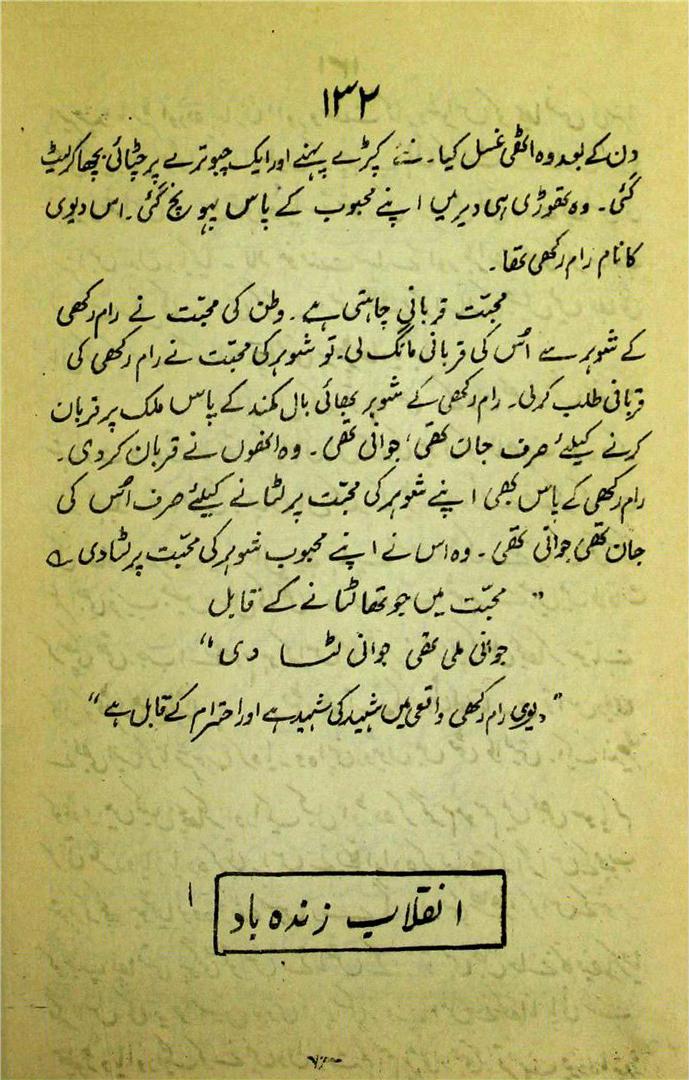 ۱۳۲
دن کے بعد وہ اٹھی غسل کیا۔ نئے کپڑے پہنے اور ایک چبوترے پر چٹائی بچھا کر لیٹ
گئی۔ وہ تھوڑی ہی دیر میں اپنے محبوب کے پاس پہونچ گئی۔ اس دیوی
کا نام رام رکھی تھا۔
محبّت قربانی چاہتی ہے۔ وطن کی محبّت نے رام رکھی
کے شوہر سے اُس کی قربانی مانگ لی۔ تو شوہر کی محبّت نے رام رکھی کی
قربانی طلب کرلی۔ رام رکھی کے شوہر بھائی بال مکند کے پاس ملک پر قربان
کرنے کیلئے صرف جان تھی، جوانی تھی۔ وہ انھوں نے قربان کردی۔
رام رکھی کے پاس بھی اپنے شوہر کی محبّت پر لٹانے کیلئے صرف اُس کی
جان تھی جوانی تھی۔ وہ اس نے اپنے محبوب شوہر کی محبّت پر لٹادی ؎
" محبّت میں جو تھا لٹانے کے قابل
جوانی ملی تھی جوانی لٹا دی"
"دیوی رام رکھی واقعی میں شہید کی شہید ہے اور احترام کے قابل ہے"
انقلاب زندہ باد